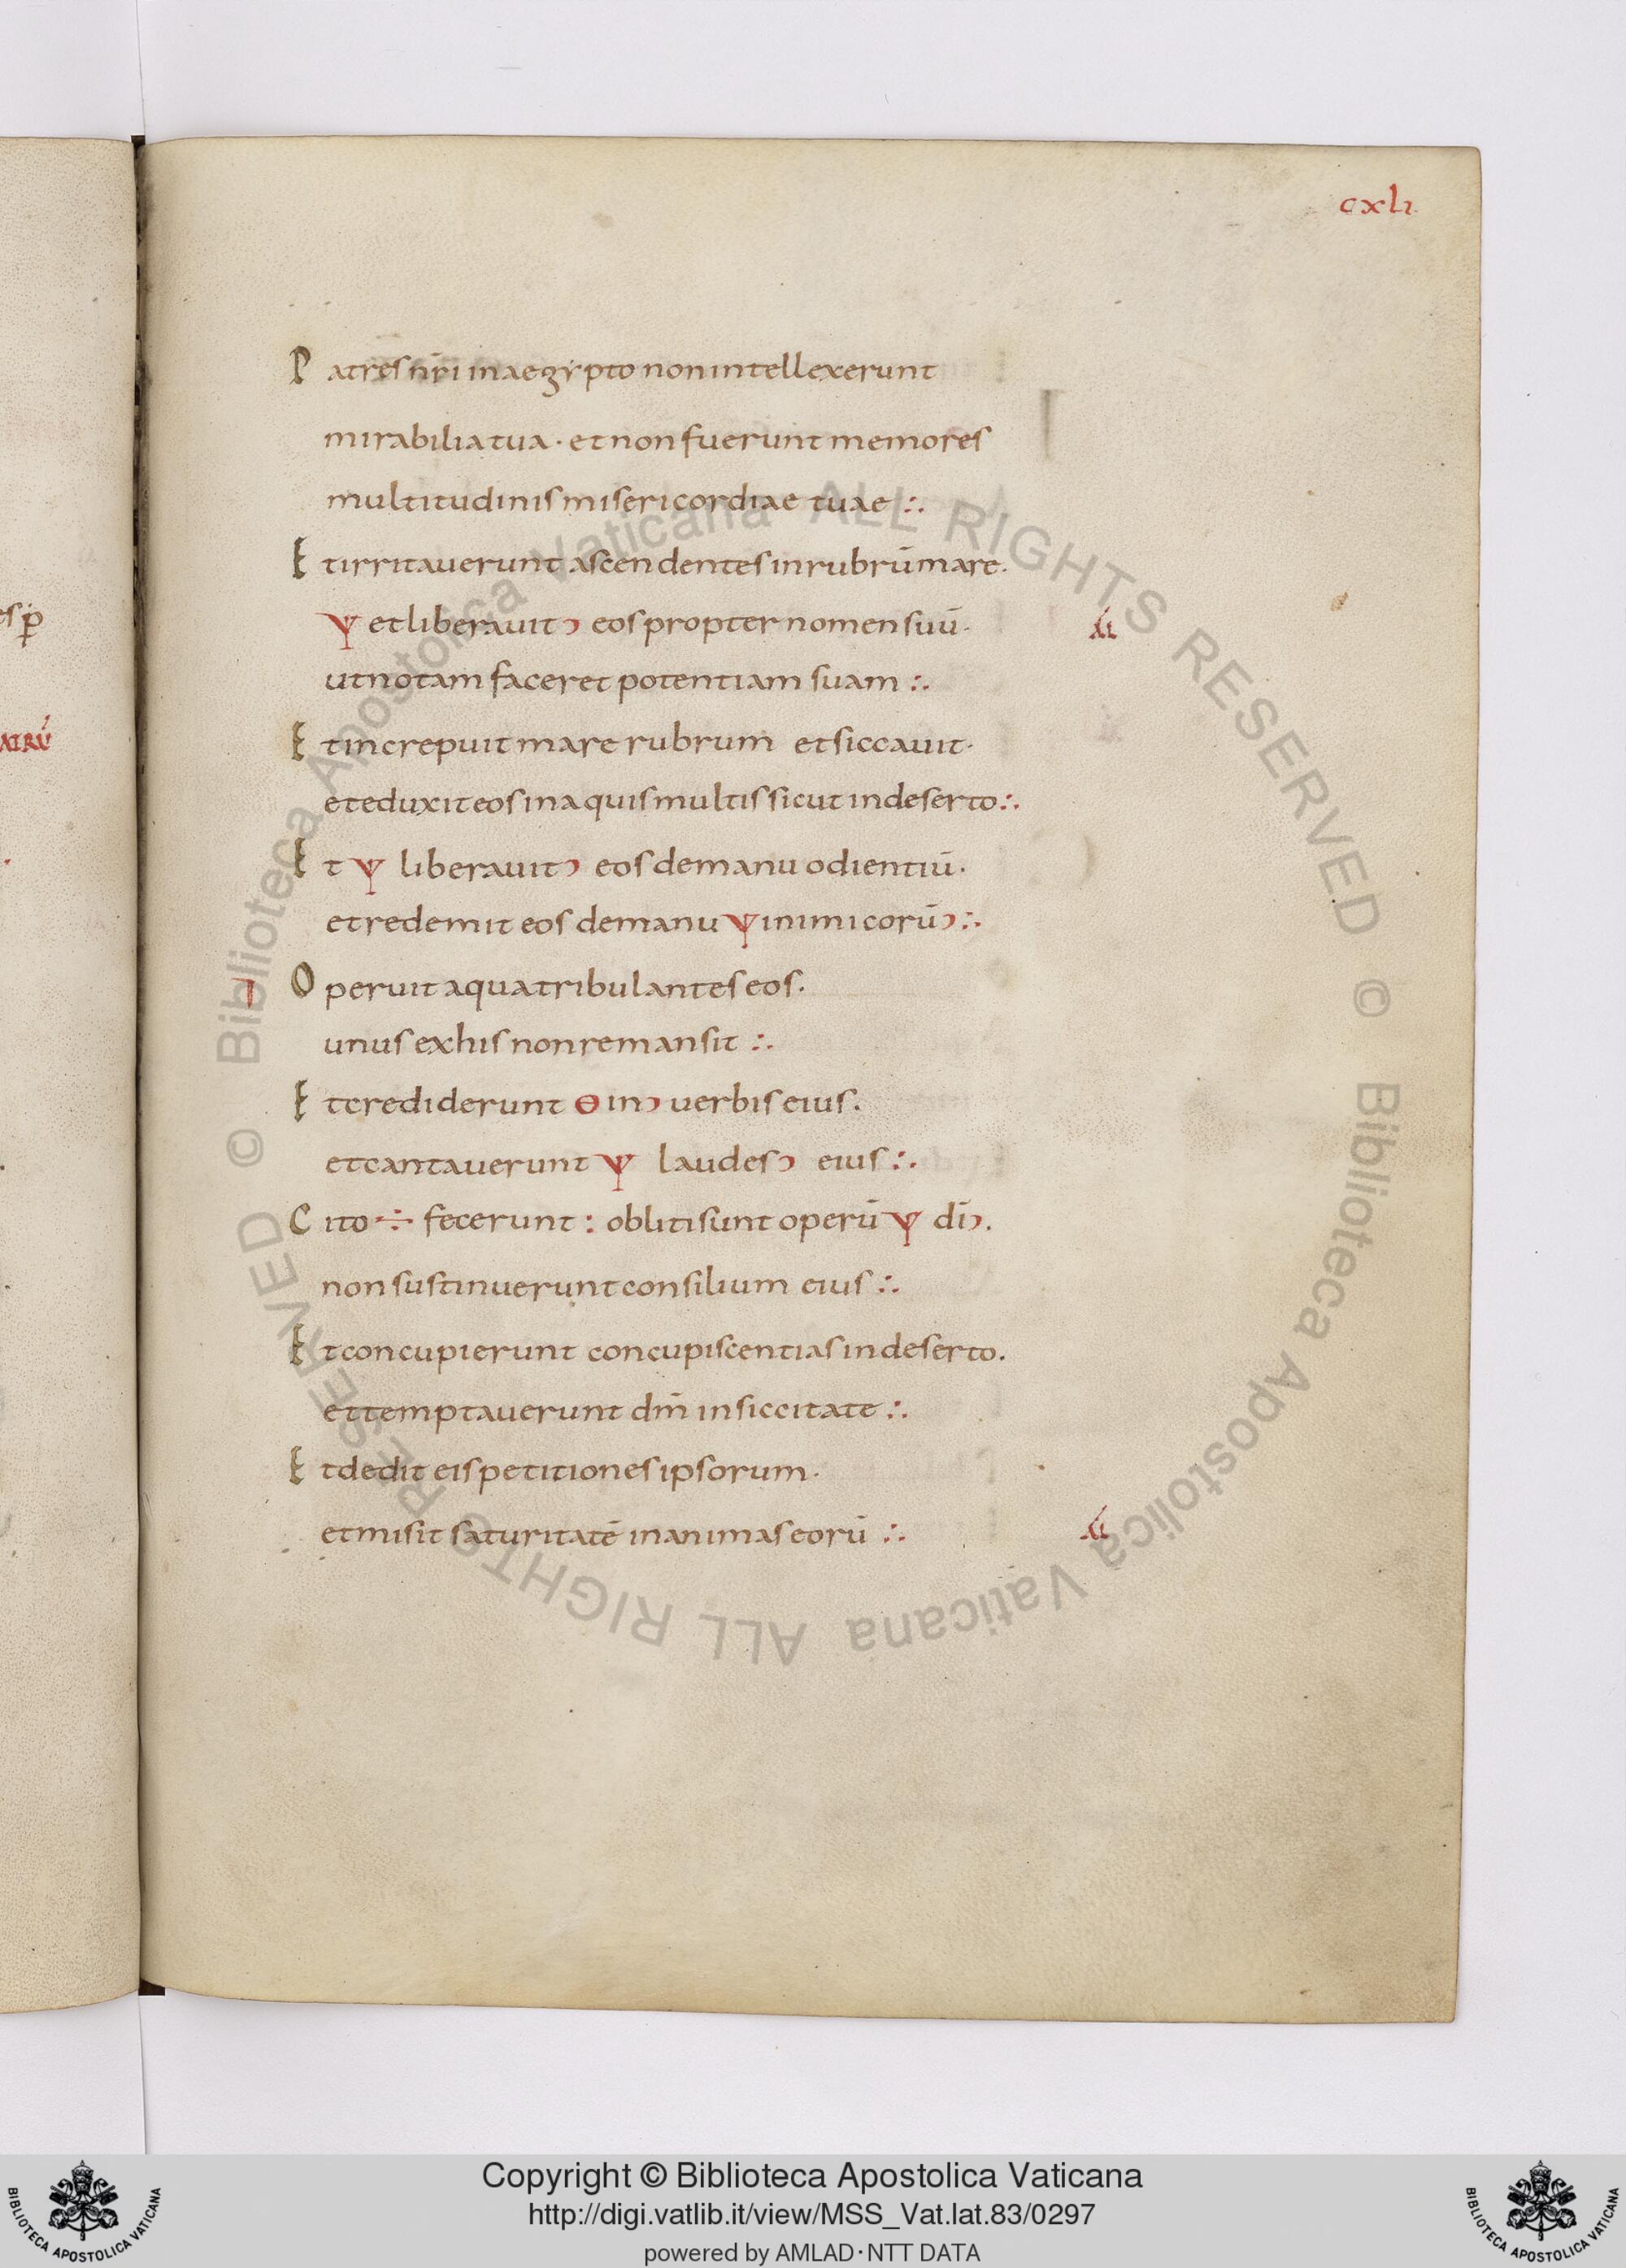 cxli
Patres nr̄i in aegypto non intellexerunt
mirabilia tua · et non fuerunt memores
multitudinis misericordiae tuae ∴
Et irritauerunt ascendentes in rubrū mare.
Ψ et liberauit ͻ eos propter nomen suū·
ut notam faceret potentiam suam ∴
Et increpuit mare rubrum et siccauit·
et eduxit eos in aquis multis sicut in deserto ∴
Et Ψ liberauit ͻ eos de manu odientiū·
et redemit eos de manu Ψ inimicorū ͻ ∴
Operuit aqua tribulantes eos.
unus ex his non remansit ∴
Et crediderunt Θ in ͻ uerbis eius.
et cantauerunt Ψ laudes ͻ eius ∴
Cito ÷ fecerunt : obliti sunt operū Ψ dī ͻ.
non sustinuerunt consilium eius ∴
Et concupierunt concupiscentias in deserto.
et temptauerunt dm̄ in siccitate ∴
Et dedit eis petitiones ipsorum·
et misit saturitatē in animas eorū ∴
Copyright © Biblioteca Apostolica Vaticana
http://digi.vatlib.it/view/MSS_Vat.lat.83/0297
powered by AMLAD·NTT DATA
BIBLIOTECA APOSTOLICA VATICANA
BIBLIOTECA APOSTOLICA VATICANA
© Biblioteca Apostolica Vaticana ALL RIGHTS RESERVED © Biblioteca Apostolica Vaticana ALL RIGHTS RESERVED